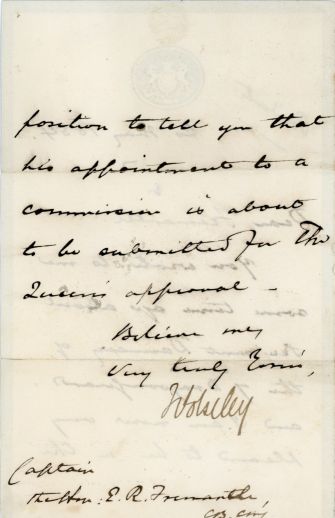 position to tell you that
his appointment to a
commission is about
to be submitted for The
Queen's approval -
Believe me,
Very truly Yours,
Wolseley
Captain
The Hon: E. R. Fremantle,
C.B. CMG